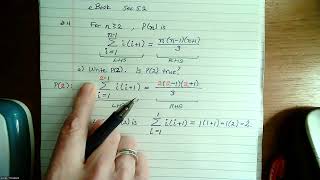 eBook Sec 5.2
For n≥2, P(n) is
n-1 ∑ i=1 i(i+1) = n(n-1)(n+1) / 3
LHS RHS
a) Write P(2). Is P(2) true?
P(2): 2-1 ∑ i=1 i(i+1) = 2(2-1)(2+1) / 3
LHS RHS
is 1 ∑ i=1 i(i+1) = 1(1+1) = 1(2) = 2